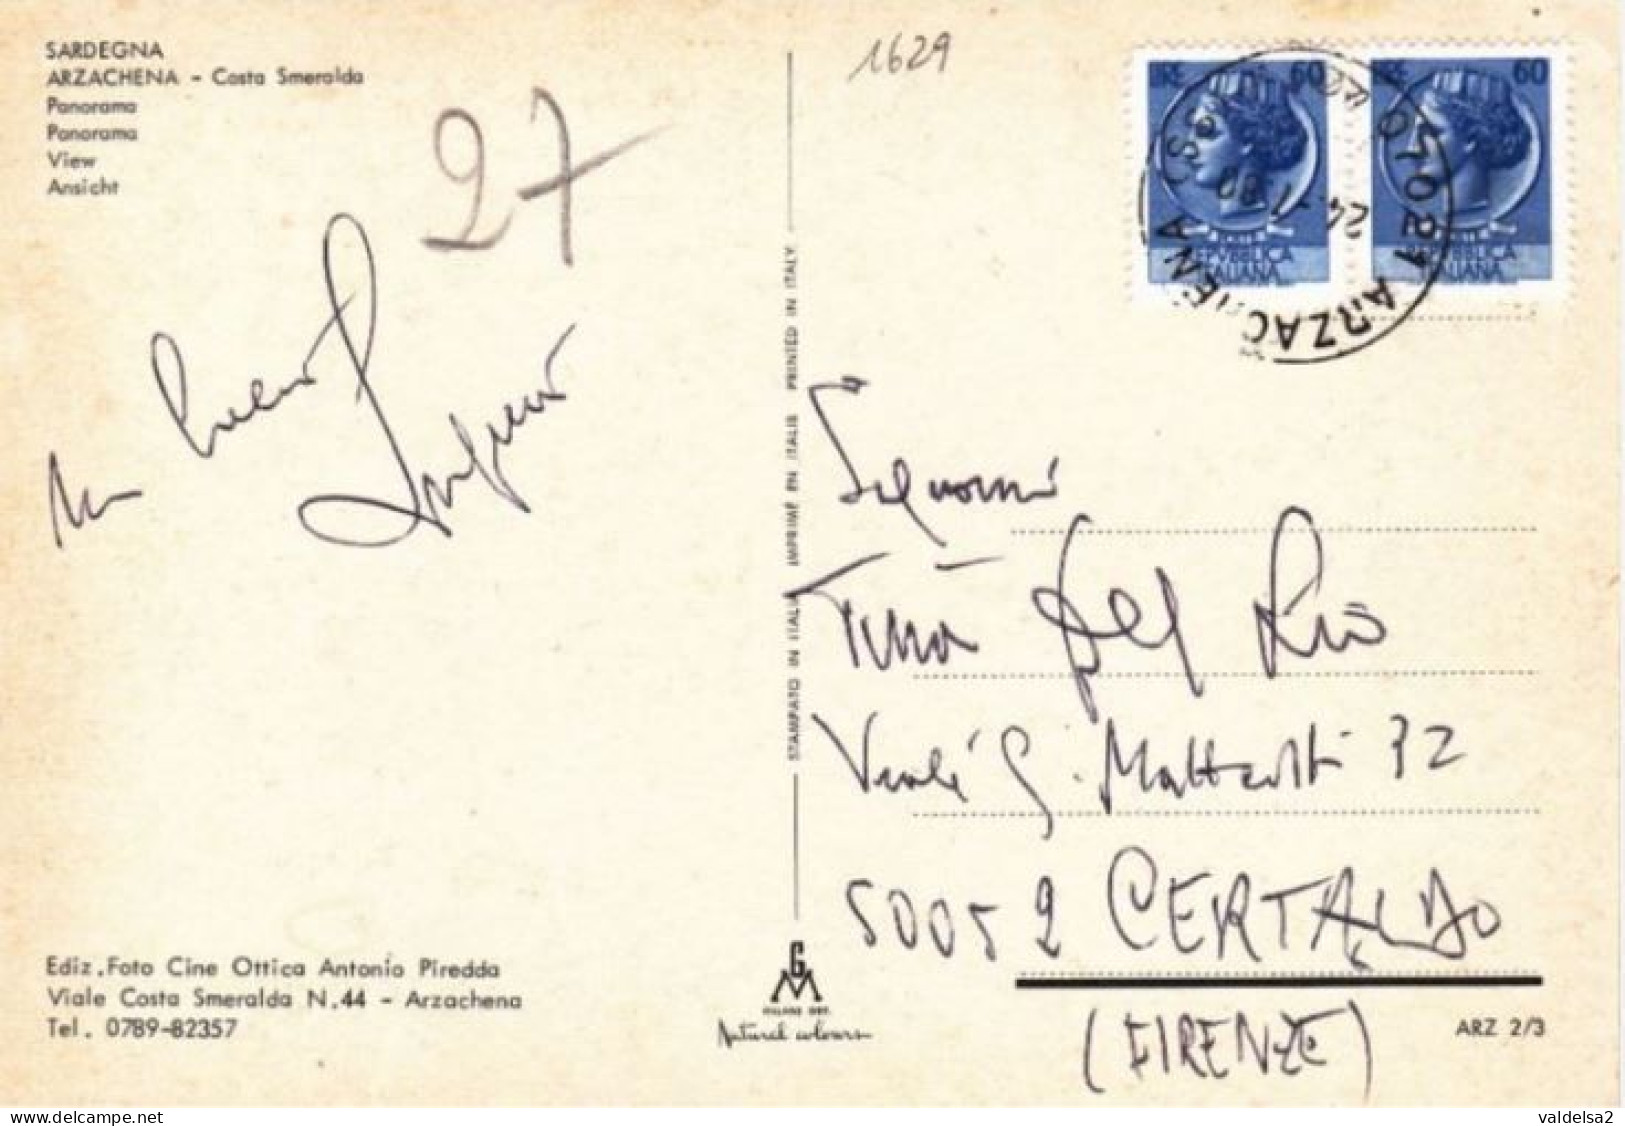 SARDEGNA
ARZACHENA - Costa Smeralda
Panorama
Panorama
View
Ansicht
27
1629
LIRE 60
LIRE 60
REPVBBLICA
ITALIANA
REPVBBLICA
ITALIANA
07021 ARZACHENA (SS)
24.
STAMPATO IN ITALIA IMPRIMÉ EN ITALIE PRINTED IN ITALY
Viale G. Matteotti 32
50052 CERTALDO
(FIRENZE)
Ediz. Foto Cine Ottica Antonio Piredda
Viale Costa Smeralda N. 44 - Arzachena
Tel. 0789-82357
GM
Natural colours
ARZ 2/3
valdelsa2